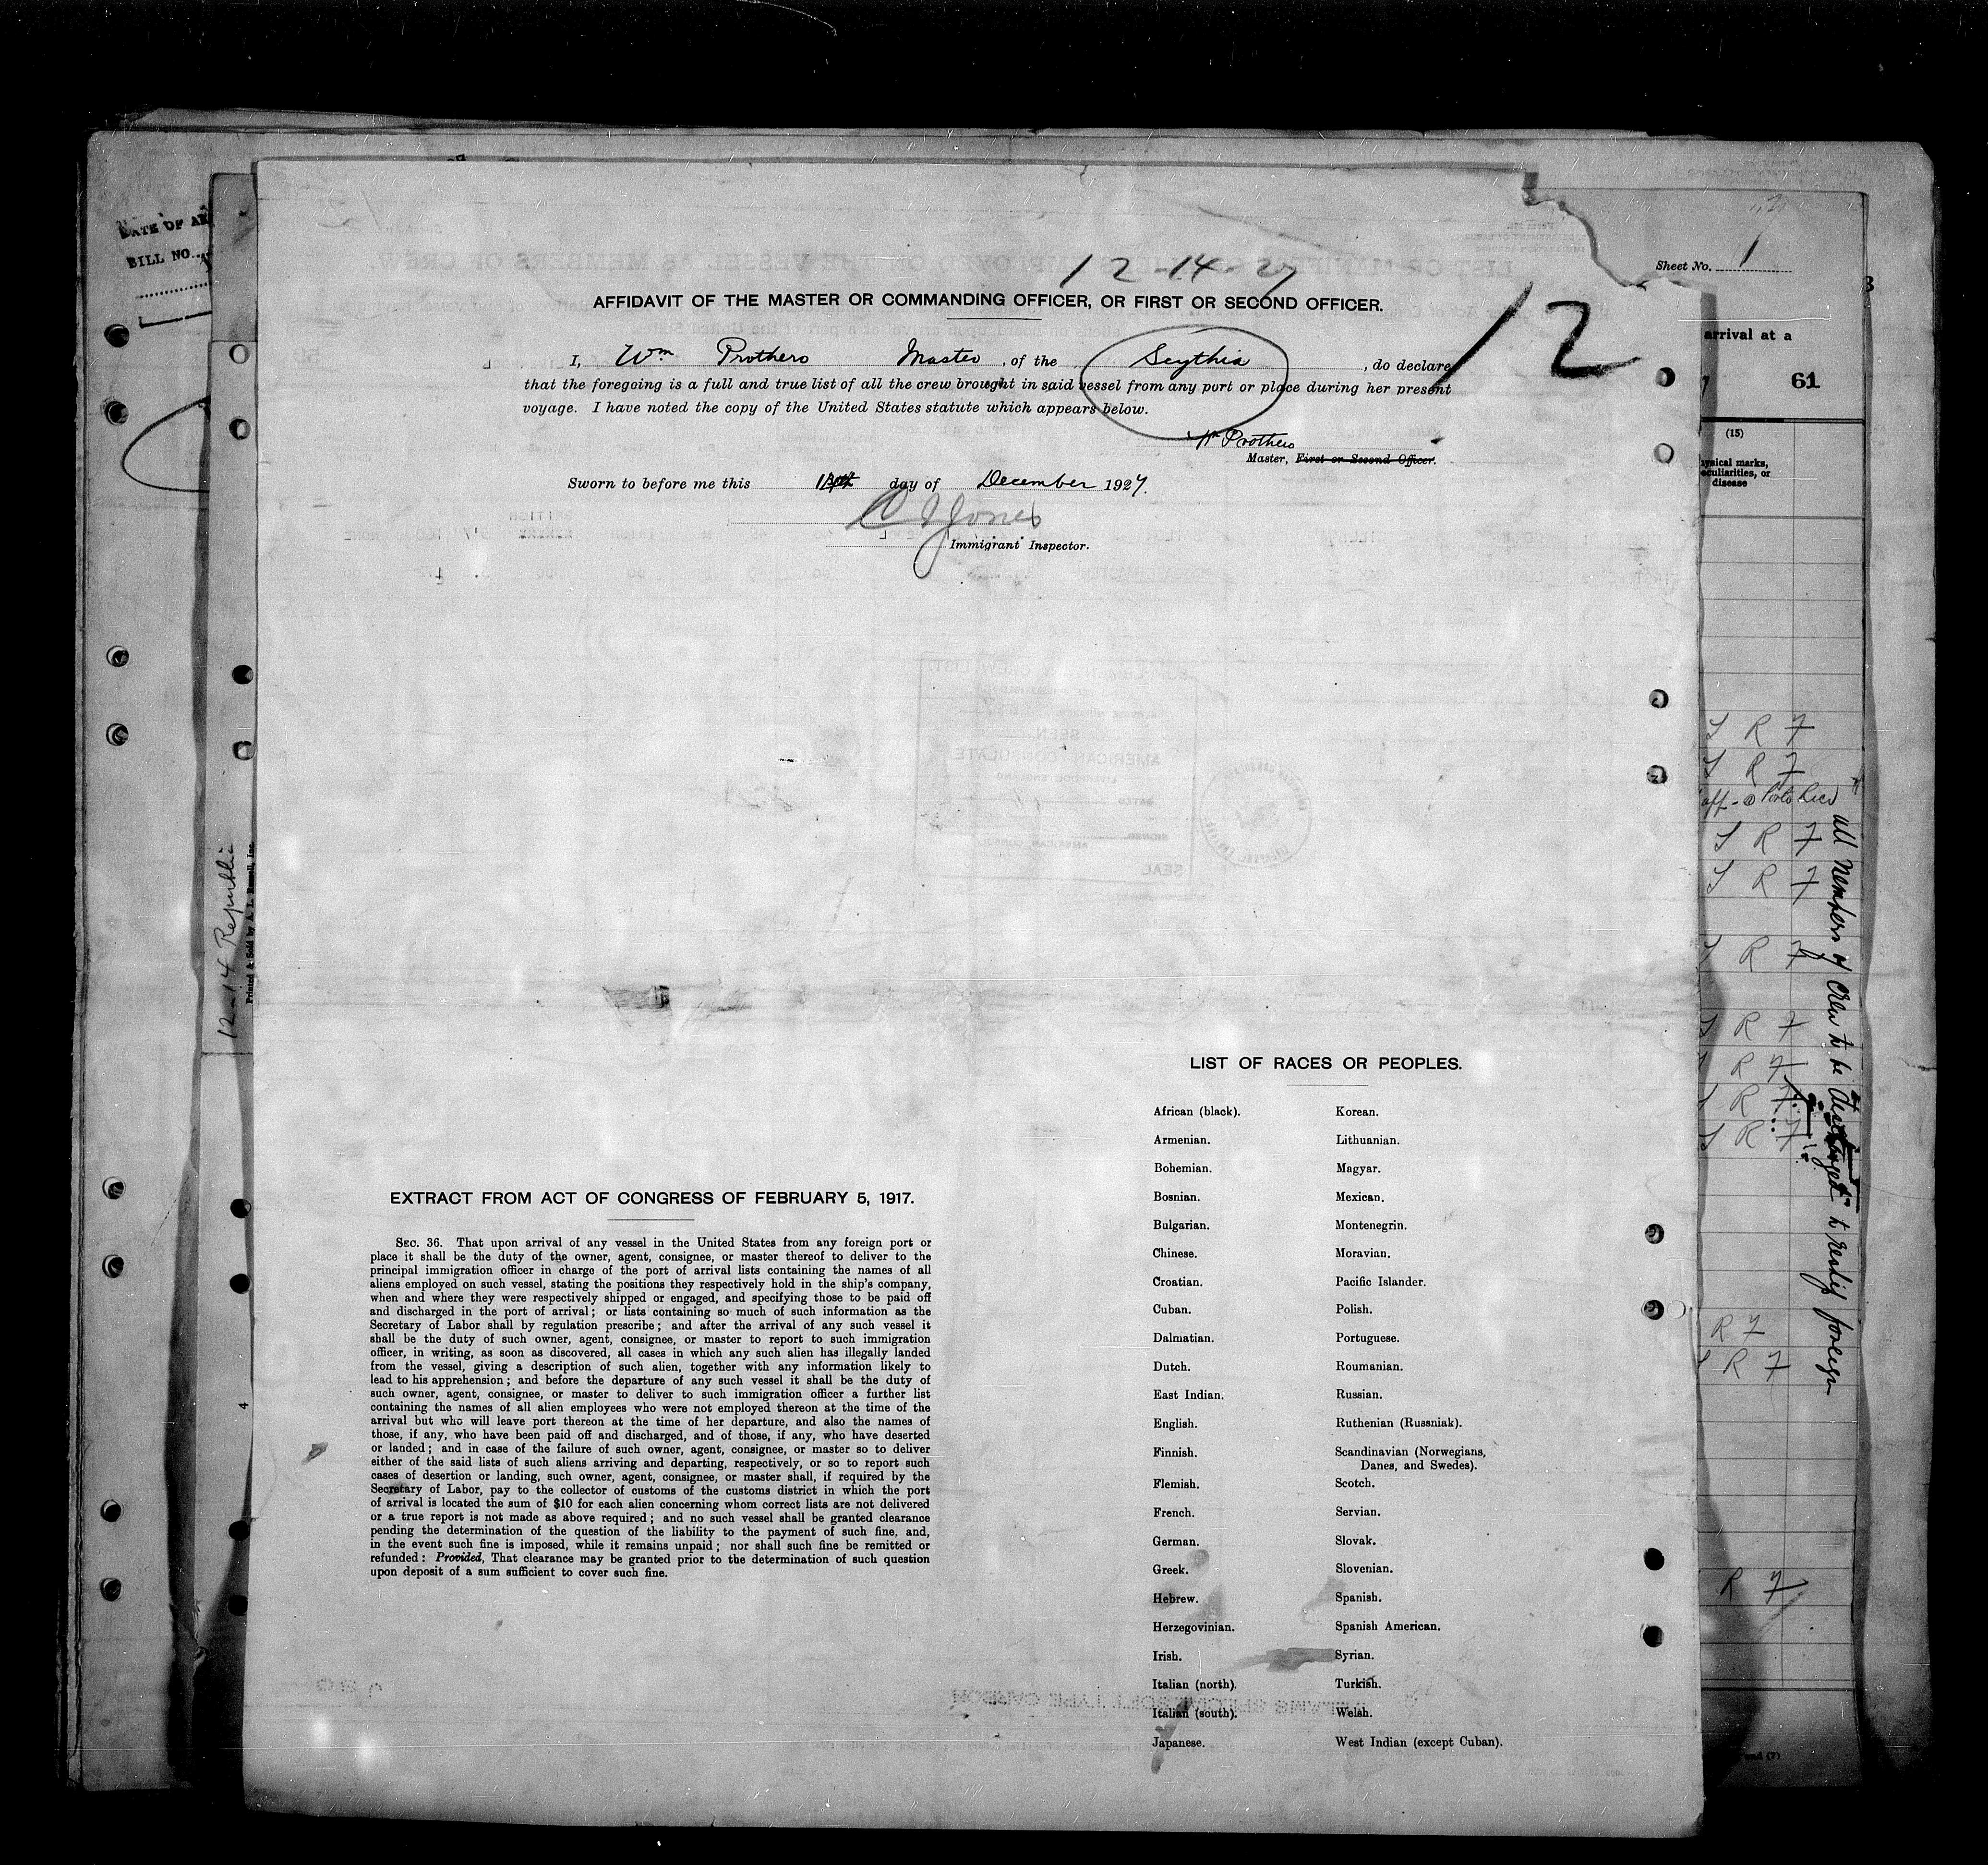 DATE OF AR
BILL NO.
Sheet No. 1
12-14-27
AFFIDAVIT OF THE MASTER OR COMMANDING OFFICER, OR FIRST OR SECOND OFFICER.
12
I, Wm Prothero Master, of the Scythia, do declare
that the foregoing is a full and true list of all the crew brought in said vessel from any port or place during her present
voyage. I have noted the copy of the United States statute which appears below.
Wm Prothero
Master, First or Second Officer.
Sworn to before me this day of December 1927.
Jones
Immigrant Inspector.
arrival at a
61
(15)
ysical marks,
eculiarities, or
disease
S R F
S R F
off - @ Porto Rico
S R F
S R F
S R F
S R F
R F
S R F
S R F
R F
S R F
R F
all members of crew to be discharged to reship foreign
12-14 Republic
Printed & Sold by A. L. Russell, Inc.
4
SEEN
AMERICAN CONSULATE
SEAL
LIST OF RACES OR PEOPLES.
African (black).
Armenian.
Bohemian.
Bosnian.
Bulgarian.
Chinese.
Croatian.
Cuban.
Dalmatian.
Dutch.
East Indian.
English.
Finnish.
Flemish.
French.
German.
Greek.
Hebrew.
Herzegovinian.
Irish.
Italian (north).
Italian (south).
Japanese.
Korean.
Lithuanian.
Magyar.
Mexican.
Montenegrin.
Moravian.
Pacific Islander.
Polish.
Portuguese.
Roumanian.
Russian.
Ruthenian (Russniak).
Scandinavian (Norwegians,
Danes, and Swedes).
Scotch.
Servian.
Slovak.
Slovenian.
Spanish.
Spanish American.
Syrian.
Turkish.
Welsh.
West Indian (except Cuban).
EXTRACT FROM ACT OF CONGRESS OF FEBRUARY 5, 1917.
SEC. 36. That upon arrival of any vessel in the United States from any foreign port or
place it shall be the duty of the owner, agent, consignee, or master thereof to deliver to the
principal immigration officer in charge of the port of arrival lists containing the names of all
aliens employed on such vessel, stating the positions they respectively hold in the ship's company,
when and where they were respectively shipped or engaged, and specifying those to be paid off
and discharged in the port of arrival; or lists containing so much of such information as the
Secretary of Labor shall by regulation prescribe; and after the arrival of any such vessel it
shall be the duty of such owner, agent, consignee, or master to report to such immigration
officer, in writing, as soon as discovered, all cases in which any such alien has illegally landed
from the vessel, giving a description of such alien, together with any information likely to
lead to his apprehension; and before the departure of any such vessel it shall be the duty of
such owner, agent, consignee, or master to deliver to such immigration officer a further list
containing the names of all alien employees who were not employed thereon at the time of the
arrival but who will leave port thereon at the time of her departure, and also the names of
those, if any, who have been paid off and discharged, and of those, if any, who have deserted
or landed; and in case of the failure of such owner, agent, consignee, or master so to deliver
either of the said lists of such aliens arriving and departing, respectively, or so to report such
cases of desertion or landing, such owner, agent, consignee, or master shall, if required by the
Secretary of Labor, pay to the collector of customs of the customs district in which the port
of arrival is located the sum of $10 for each alien concerning whom correct lists are not delivered
or a true report is not made as above required; and no such vessel shall be granted clearance
pending the determination of the question of the liability to the payment of such fine, and,
in the event such fine is imposed, while it remains unpaid; nor shall such fine be remitted or
refunded: Provided, That clearance may be granted prior to the determination of such question
upon deposit of a sum sufficient to cover such fine.
and (7)